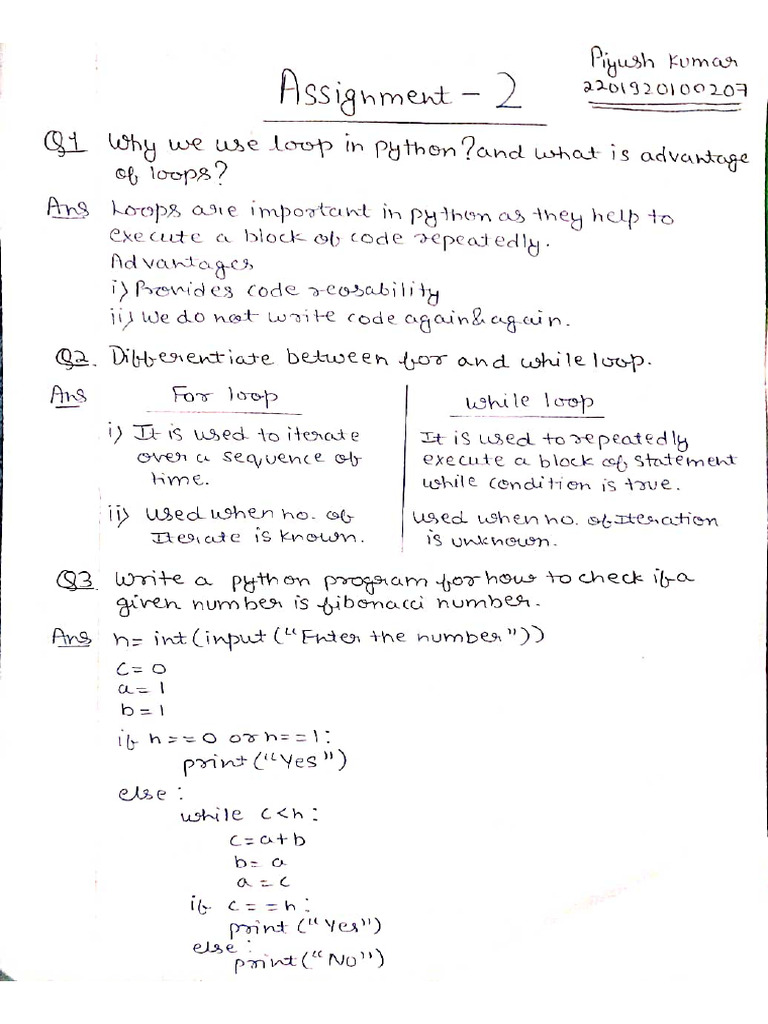 Piyush Kumar
Assignment - 2
2201920100207
Q1 Why we use loop in python? and what is advantage
of loops?
Ans Loops are important in python as they help to
execute a block of code repeatedly.
Advantages
i) Provides code reosability
ii) We do not write code again & again.
Q2. Differentiate between for and while loop.
Ans For loop
while loop
i) It is used to iterate
over a sequence of
time.
It is used to repeatedly
execute a block of statement
while condition is true.
ii) used when no. of
Iterate is known.
used when no. of Iteration
is unknown.
Q3 Write a python program for how to check if a
given number is fibonacci number.
Ans n= int(input("Enter the number"))
c=0
a=1
b=1
if n==0 or n==1:
print("Yes")
else:
while c<n:
c=a+b
b=a
a=c
if c==n:
print("Yes")
else:
print("No")